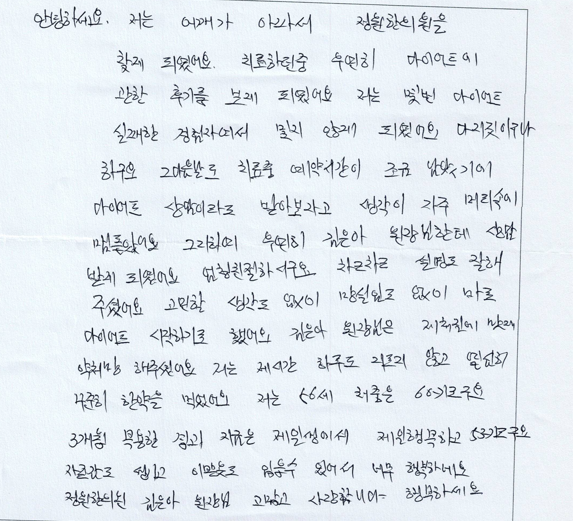 안녕하세요. 저는 어깨가 아파서 정원한의원을
찾게 되었어요. 치료하던중 우연히 다이어트에
관한 후기를 보게 되었어요 저는 몇번 다이어트
실패한 경험자여서 믿지 않게 되었어요 다그짓이구나
하구요 그다음날도 치료중 예약시간이 조금 남았기에
다이어트 상담이라도 받아보라고 생각이 자주 머리속에
맴돌았어요 그리하여 우연히 김은아 원장님한테 상담
받게 되었어요 엄청친절하시구요 차근차근 설명도 잘해
주셨어요 고민할 생각도 없이 망설임도 없이 바로
다이어트 시작하기로 했어요 김은아 원장님은 제체질에 맞게
약처방 해주셨어요 저는 제시간 하루도 거르지 않고 열심히
꾸준히 한약을 먹었어요 저는 56세 체중은 66키로구요
3개월 복용한 결과 지금은 제일생에서 제일행복하고 53키로구요
자존감도 생기고 이쁜옷도 입을수 있어서 너무 행복하네요
정원한의원 김은아 원장님 고맙고 사랑합니다~ 행복하세요